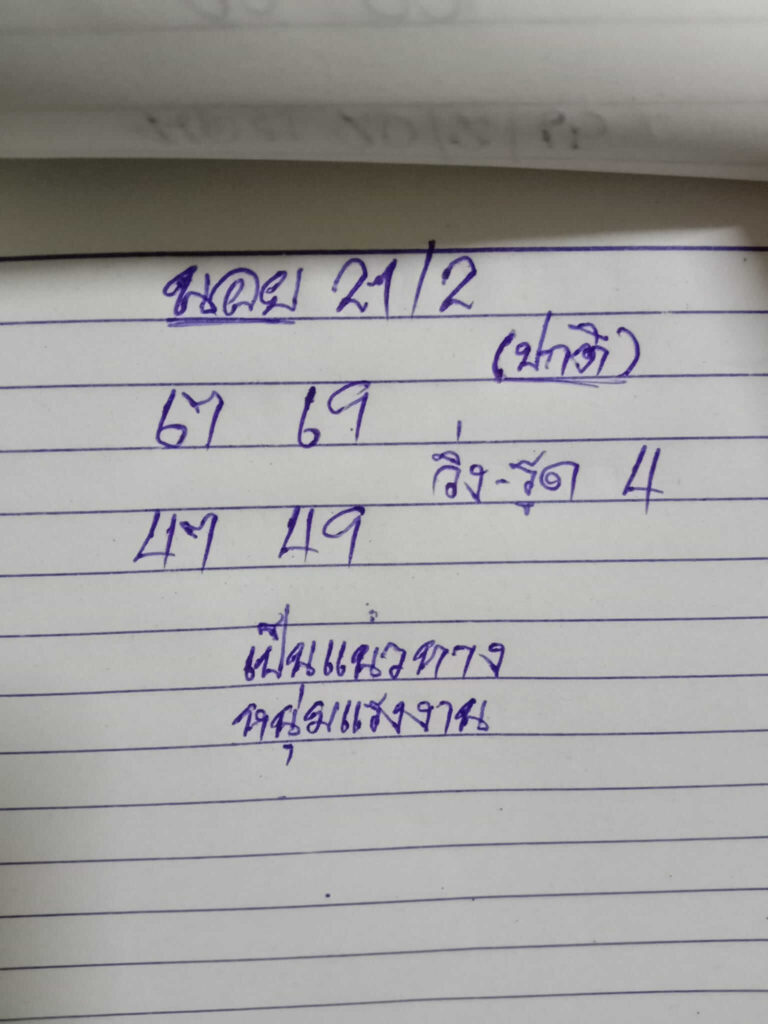 นอย 21/2
(ปกติ)
67 69
วิ่ง-รูด 4
47 49
เป็นแนวทาง
หนุ่มแรงงาน